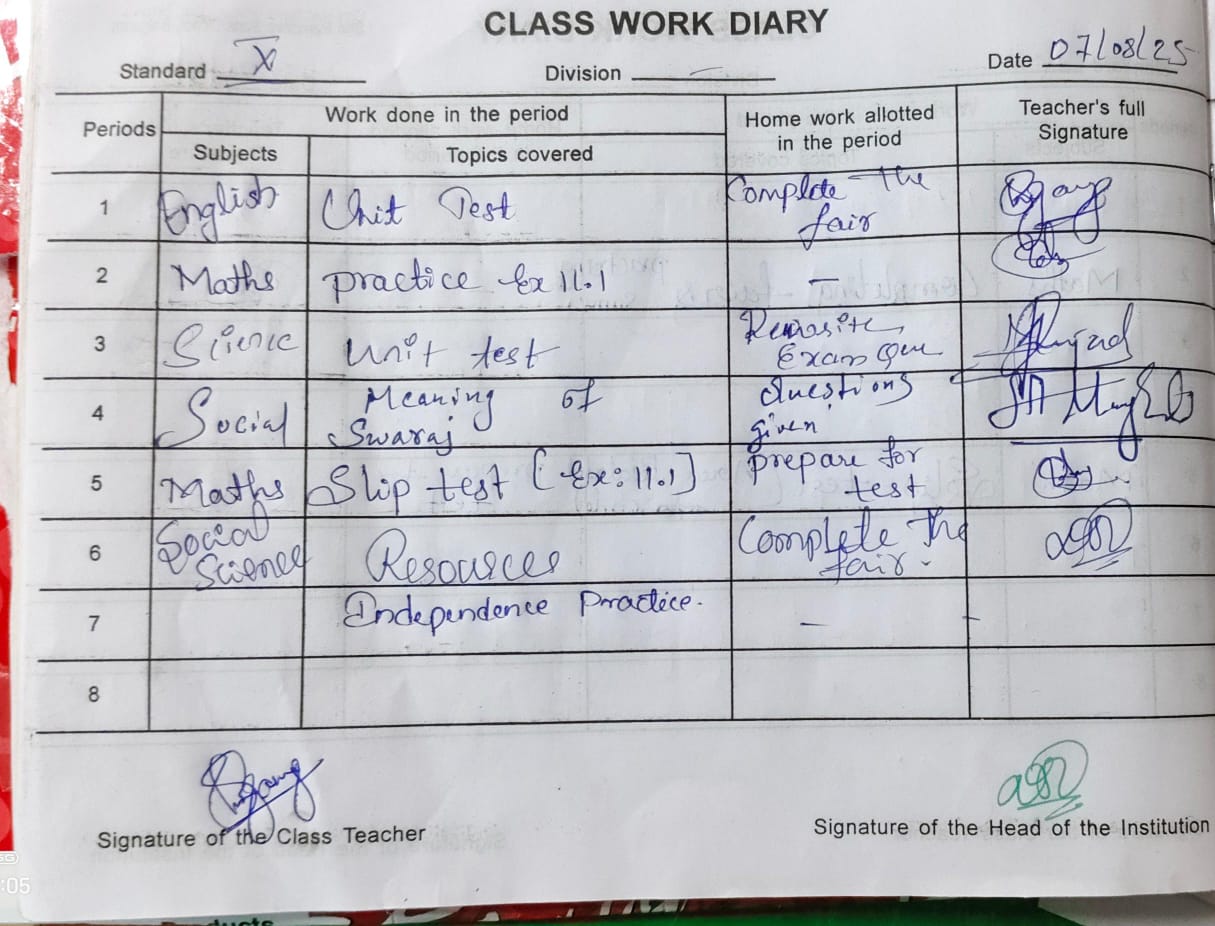 CLASS WORK DIARY
Standard X
Division —
Date 07/08/25
Periods
Work done in the period
Home work allotted
in the period
Teacher's full
Signature
Subjects
Topics covered
1
English
Unit Test
Complete the
fair
2
Maths
practice Ex 11.1
—
3
Science
Unit test
Exam
4
Social
Meaning of
Swaraj
Questions
given
5
Maths
Slip test [Ex: 11.1]
prepare for
test
6
Social
Science
Resources
Complete the
fair.
7
Independence Practice.
—
8
Signature of the Class Teacher
Signature of the Head of the Institution
:05